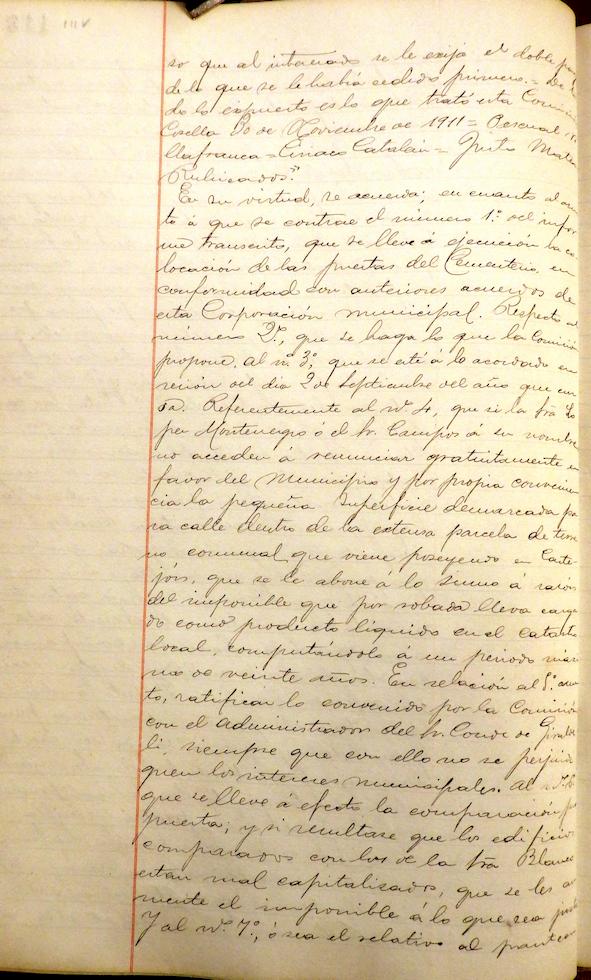 so que al interesado se le exija el doble
de lo que se le había cedido primero. = De
do lo expuesto es lo que trató esta Comisión
Corella 30 de Noviembre de 1911 = Pascual
llafranca = Ciriaco Catalán = Justo
Rubricados."
En su virtud, se acuerda; en cuanto al asun
to á que se contrae el número 1.º del infor
me transcrito, que se lleve á ejecución la co
locación de las puertas del Cementerio en
conformidad con anteriores acuerdos de
esta Corporación municipal. Respecto al
número 2.º, que se haga lo que la Comisión
propone. Al nº 3º, que se esté á lo acordado en
sesión del día 2 de Septiembre del año que cur
sa. Referentemente al nº 4, que si la Sra Ló
pez Montenegro ó el Sr. Campos á su nombre
no acceden á renunciar gratuitamente en
favor del Municipio y por propia convenien
cia la pequeña superficie demarcada pa
ra calle dentro de la extensa parcela de terre
no comunal que viene poseyendo en Caste-
jón, que se le abone á lo sumo á razón
del imponible que por robada lleva carga
do como producto líquido en el catastro
local, computándolo á un periodo máxi
mo de veinte años. En relación al 5.º asun
to, ratificar lo convenido por la Comisión
con el administrador del Sr. Conde de Giralde
li; siempre que con ello no se perjudi
quen los intereses municipales. Al nº 6
que se lleve á efecto la comparación
puesta; y si resultase que los edificios
comparados con los de la Sra Blanco
estan mal capitalizados, que se les au
mente el imponible á lo que sea justo
Y al nº 7.º, ó sea el relativo al